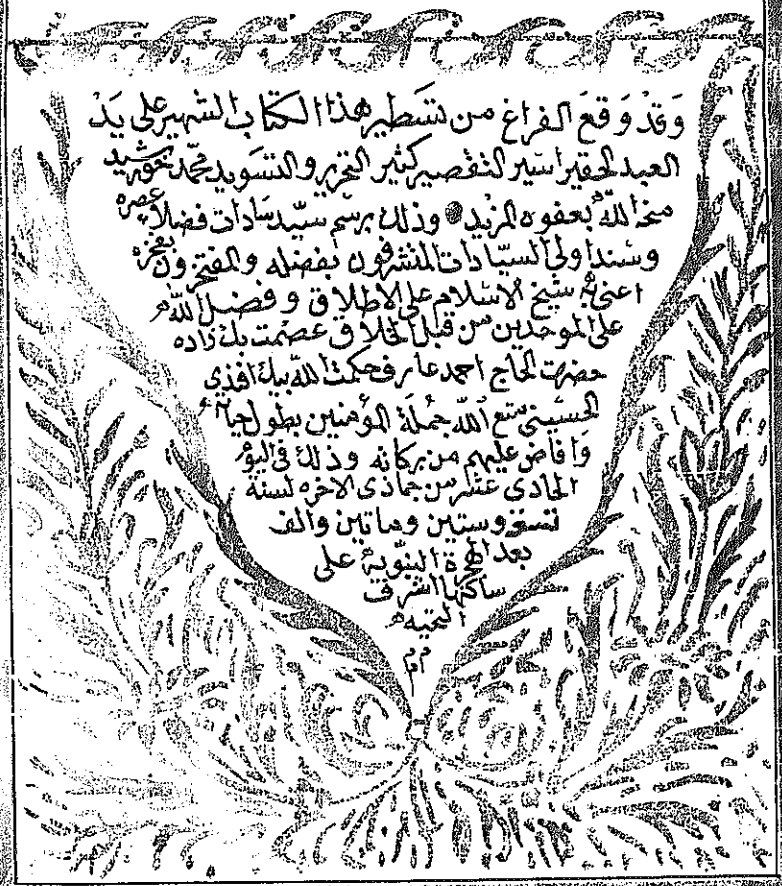 وَقَدْ وَقَعَ الفراغ من تسطير هذا الكتاب الشهير على يد
العبد الحقير اسير التقصير كثير التحرير والتسويد محمد رشيد
منحه الله بعفوه المزيد وذلك برسم سيد سادات فضلاء عصره
وسند اولي السيادات المتشرفون بفضله والمفتخرون بفخره
اعني به شيخ الاسلام على الاطلاق وفضل الله
على الموحدين من قبل الخلاق عصمت بك زاده
حضرت الحاج احمد عارف حكمت الله بيك افندي
الحسيني متع الله جملة المؤمنين بطول حياته
وَافاض عليهم من بركاته وذلك في اليوم
الحادي عشر من جمادى الاخره لسنة
تسع وستين وماتين والف
بعد الهجرة النبوية على
ساكنها اشرف
التحيه
م م